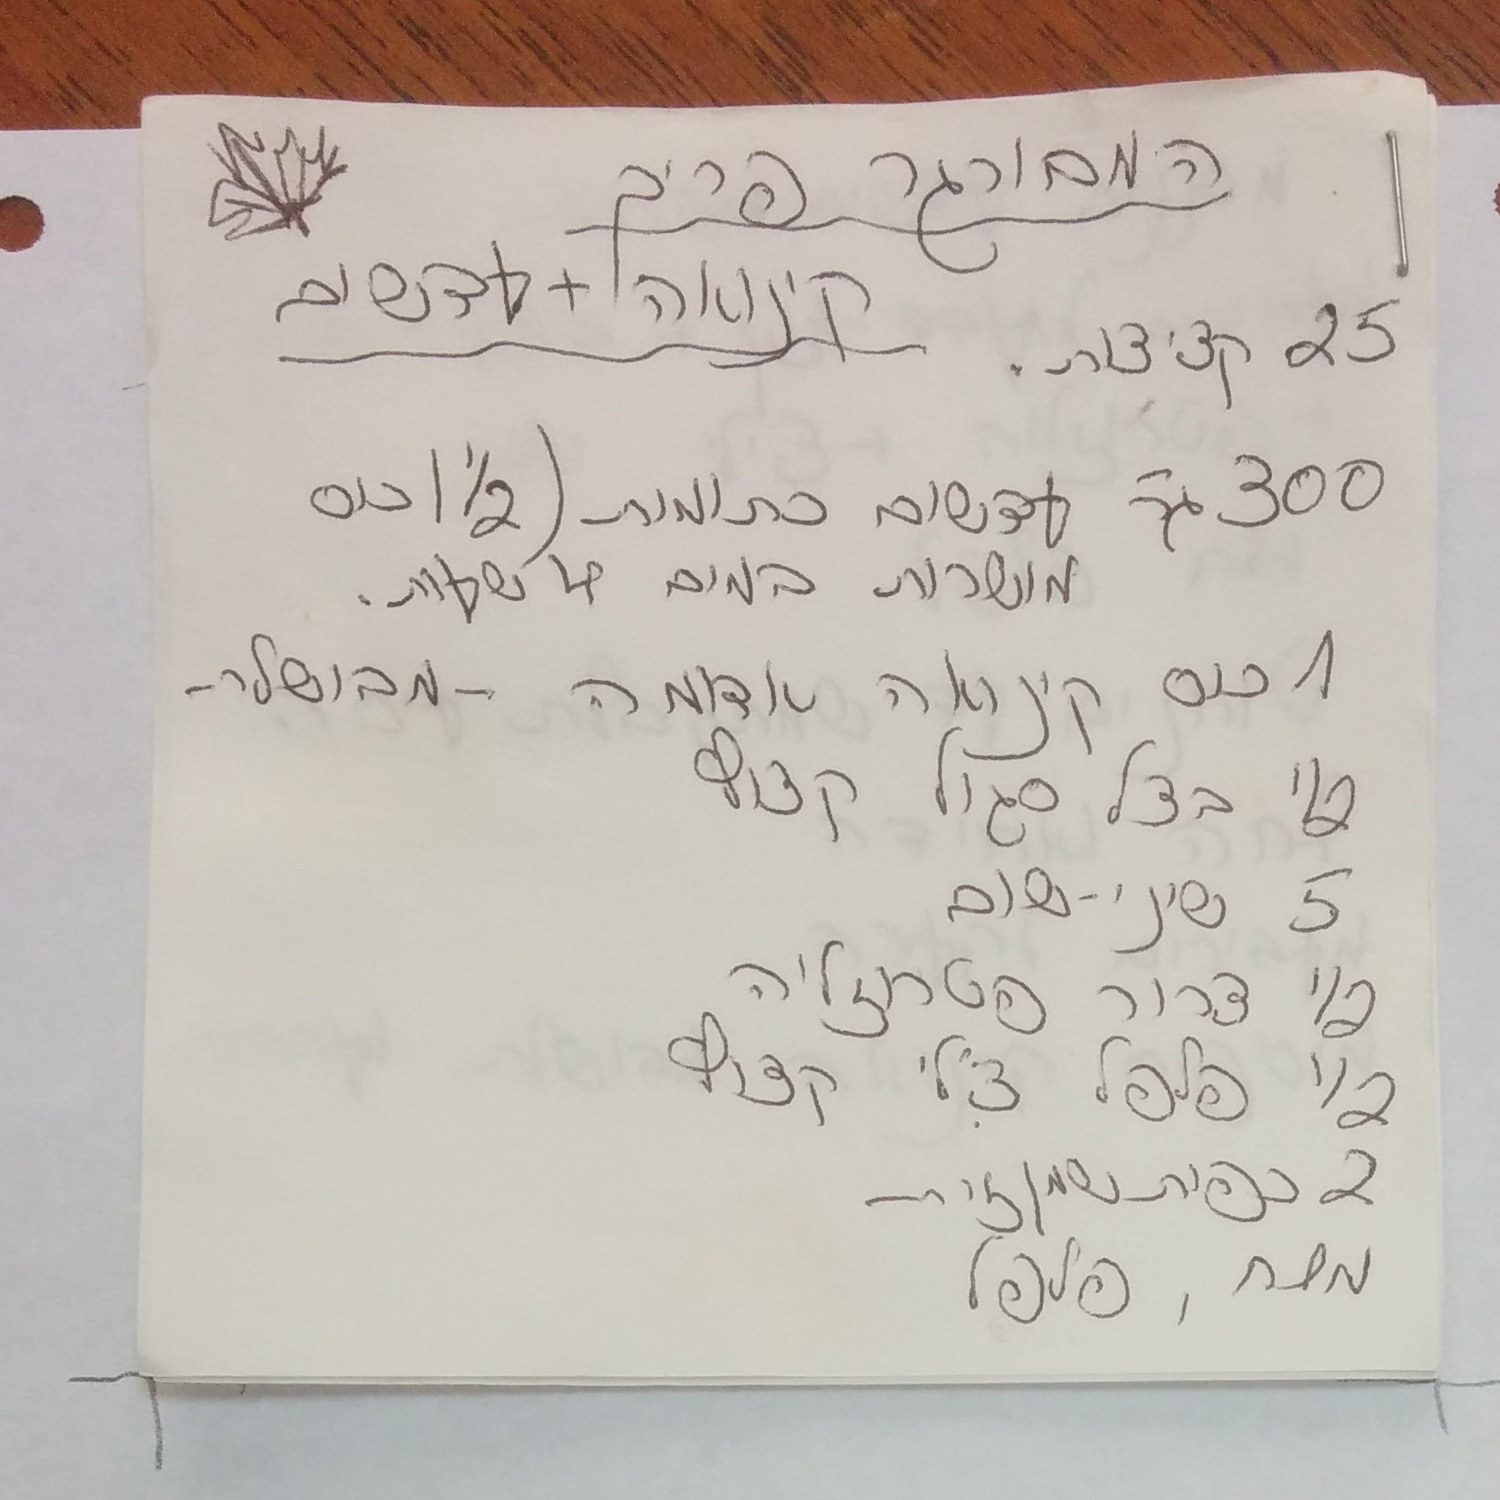 המבורגר פריך
קינואה + עדשים
25 קציצות.
300 גר' עדשים כתומות (1/2 1 כוס
מושרות במים 4 שעות.
1 כוס קינואה אדומה - מבושלת -
1/2 בצל סגול קצוץ
5 שיני-שום
1/2 צרור פטרוזליה
1/2 פלפל צ'ילי קצוץ
2 כפות שמן זית -
מלח, פלפל